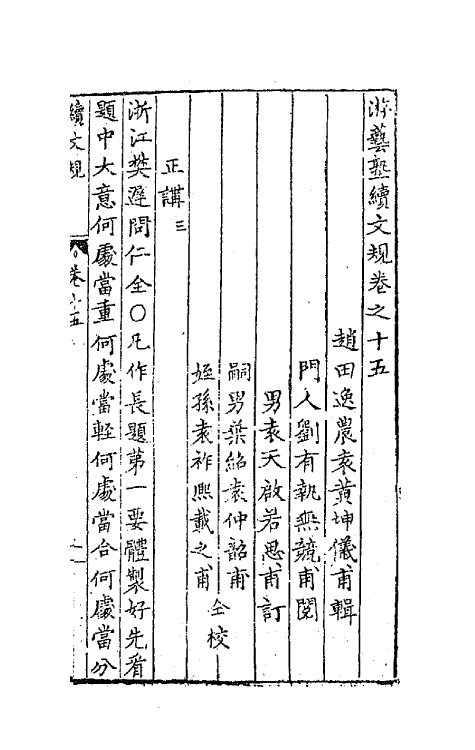 游藝塾續文規卷之十五
趙田逸農袁黃坤儀甫輯
門人劉有執無競甫閱
男袁天啟若思甫訂
嗣男葉紹袁仲韶甫
姪孫袁祚熈載之甫
仝校
正講三
浙江樊遲問仁全〇凡作長題第一要體製好先看
題中大意何處當重何處當輕何處當合何處當分
續文規
卷十五